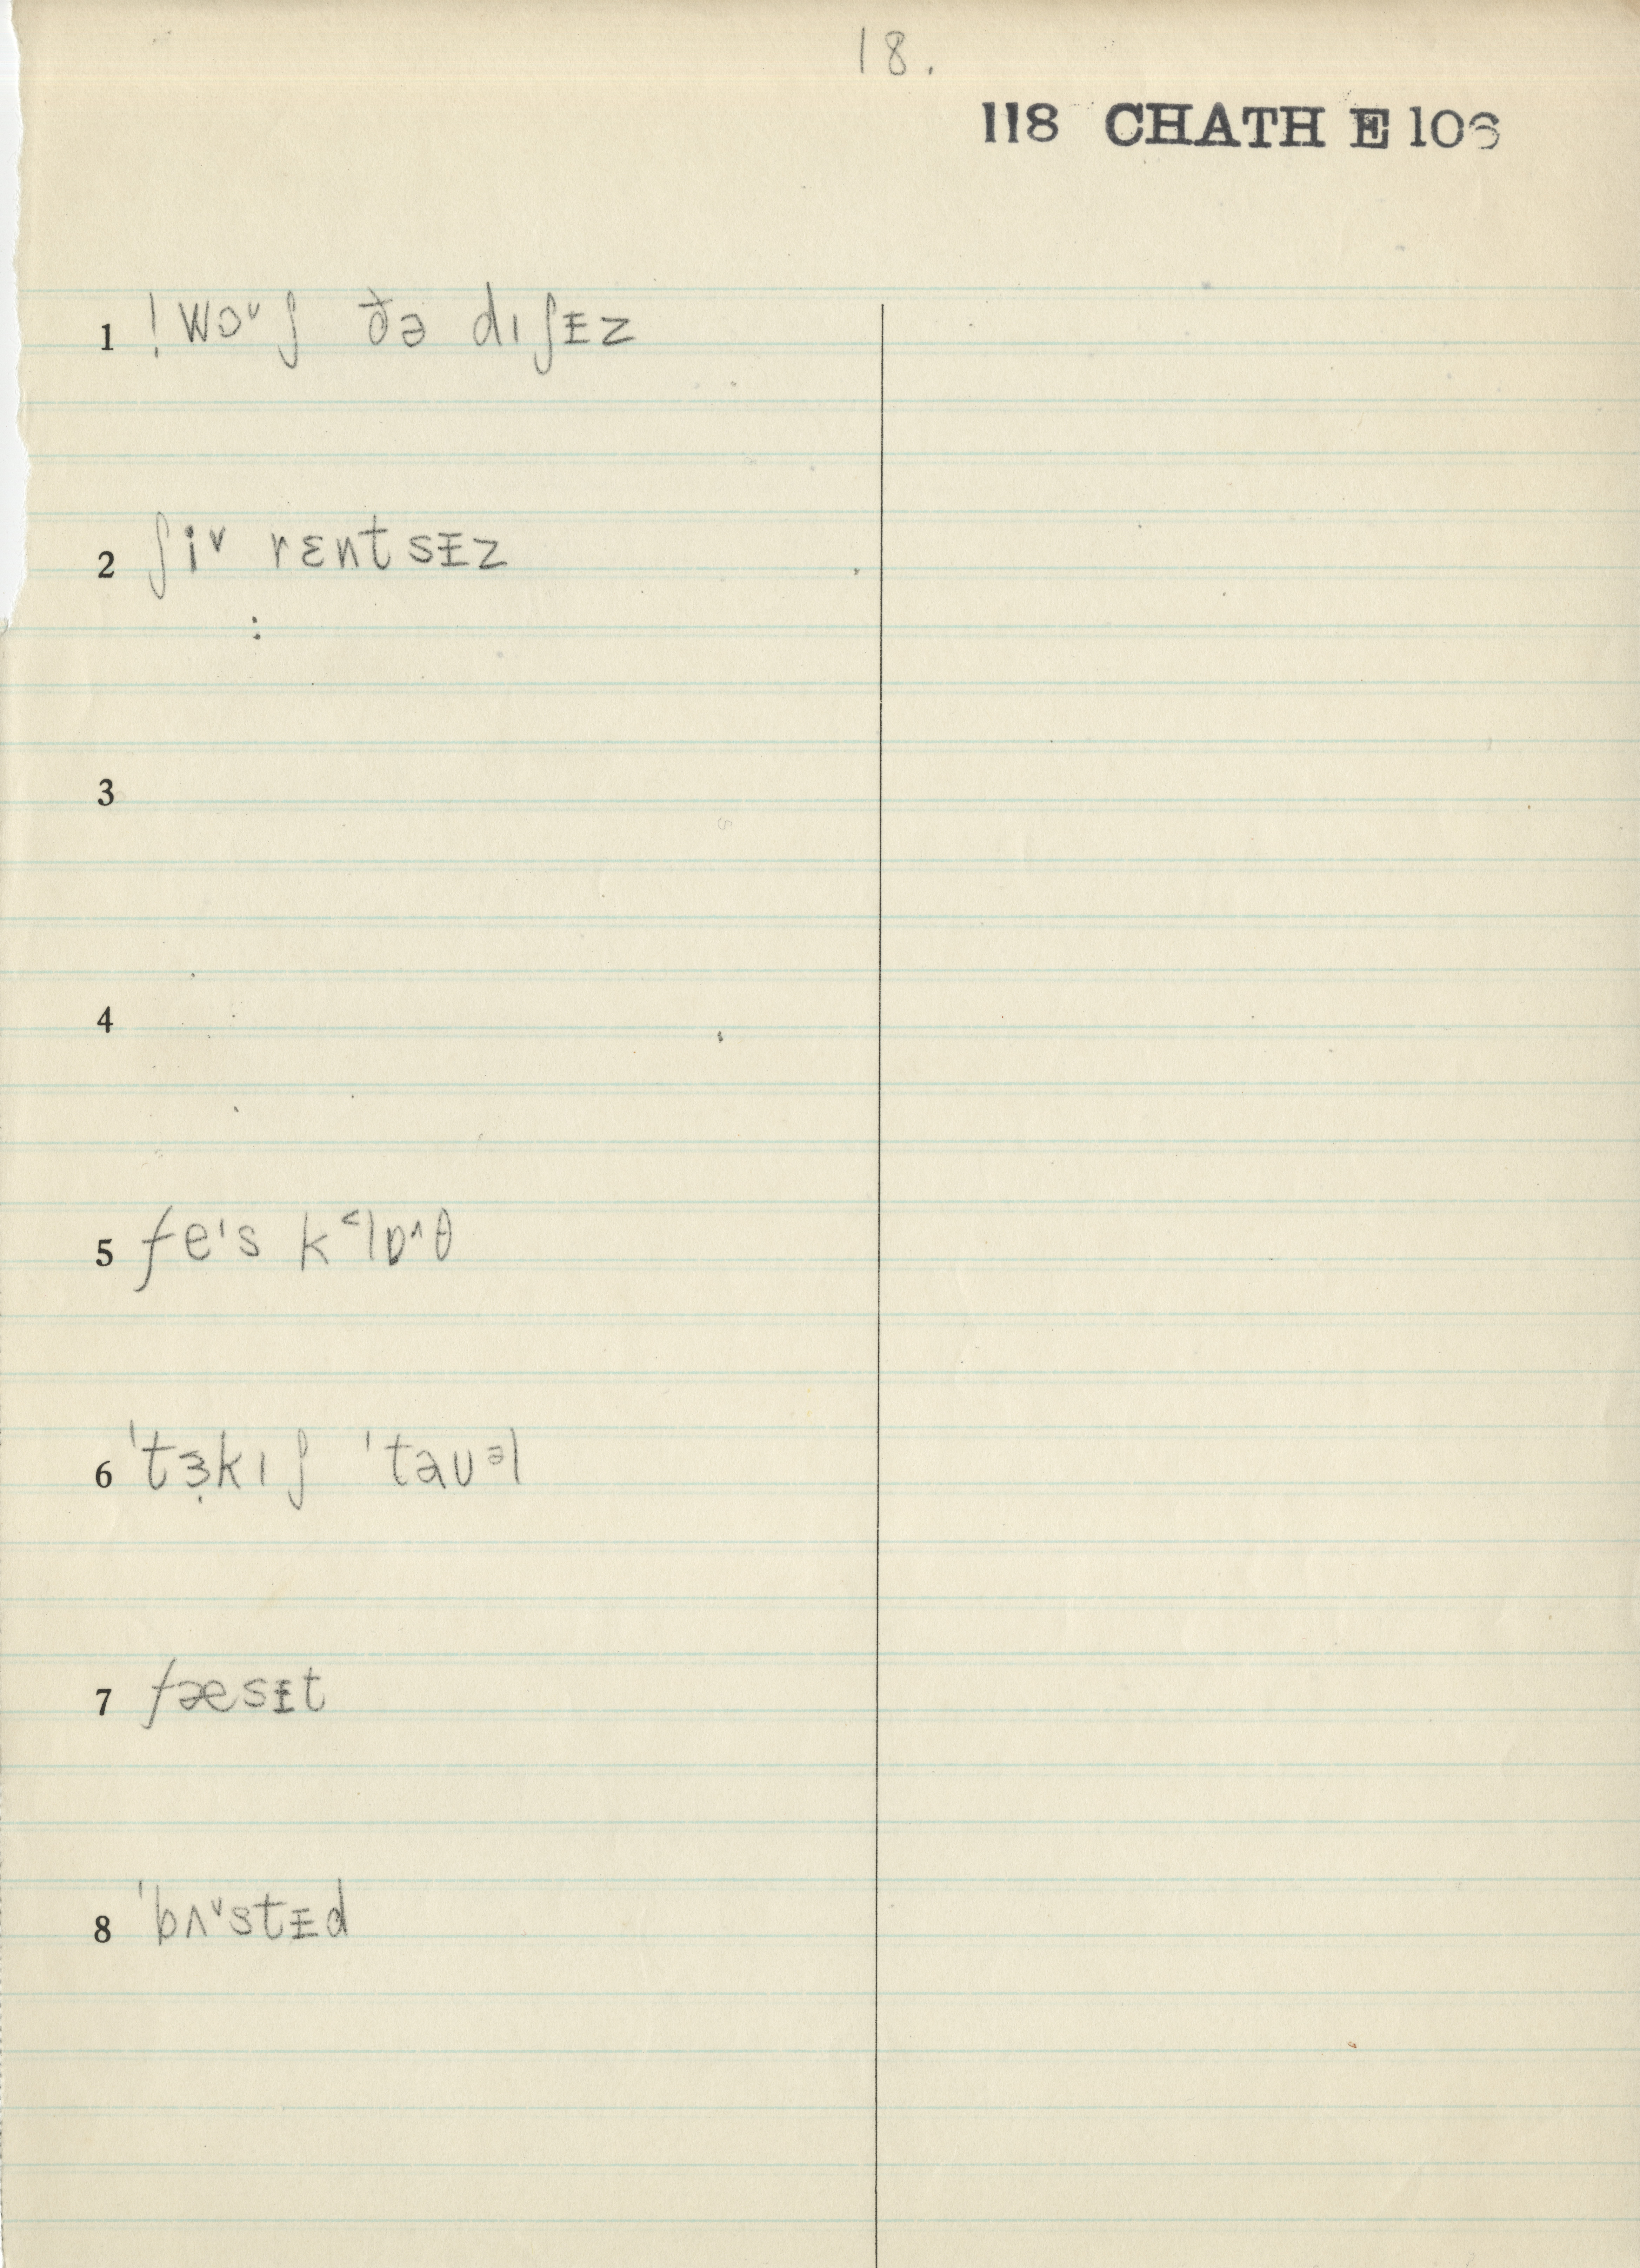 18.
118 CHATH E 106
1 ! wɔᵛʃ ðə dıʃᵻz
2 ʃiᵛ rɛntsᵻz
:
3
4
5 feˈs k˂lɒ^θ
6 ˈtɜ̣kıʃ ˈtaʊᵊl
7 fæsᵻt
8 ˈbʌᵛstᵻd